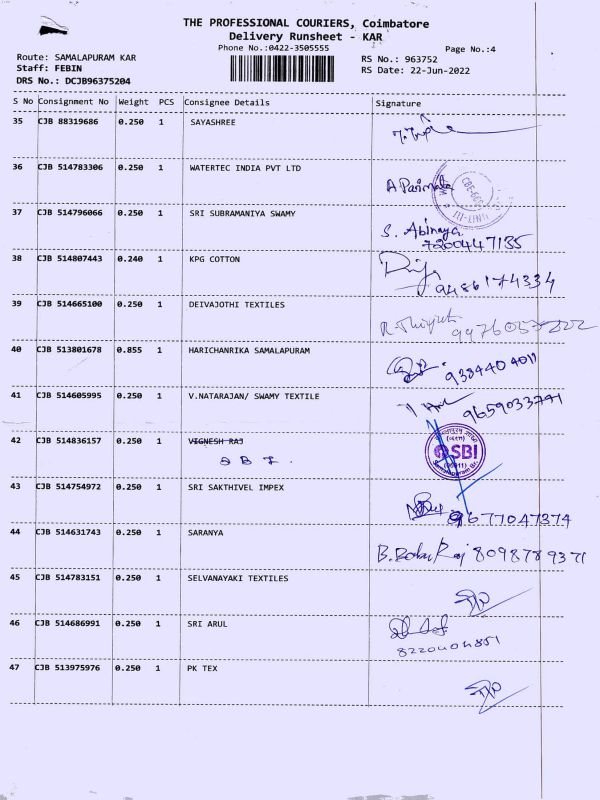 THE PROFESSIONAL COURIERS, Coimbatore
Delivery Runsheet - KAR
Phone No.:0422-3505555
Page No.:4
Route: SAMALAPURAM KAR
Staff: FEBIN
DRS No.: DCJB96375204
RS No.: 963752
RS Date: 22-Jun-2022
S No Consignment No Weight PCS Consignee Details Signature
35 CJB 88319686 0.250 1 SAYASHREE
36 CJB 514783306 0.250 1 WATERTEC INDIA PVT LTD
37 CJB 514796066 0.250 1 SRI SUBRAMANIYA SWAMY S. Abinaya
7200447135
38 CJB 514807443 0.240 1 KPG COTTON
9486174334
39 CJB 514665100 0.250 1 DEIVAJOTHI TEXTILES
40 CJB 513801678 0.855 1 HARICHANRIKA SAMALAPURAM
9384404011
41 CJB 514605995 0.250 1 V.NATARAJAN/ SWAMY TEXTILE
9659033741
42 CJB 514836157 0.250 1 VIGNESH RAJ
SBI.
SBI
43 CJB 514754972 0.250 1 SRI SAKTHIVEL IMPEX
9677047374
44 CJB 514631743 0.250 1 SARANYA
8098789371
45 CJB 514783151 0.250 1 SELVANAYAKI TEXTILES
46 CJB 514686991 0.250 1 SRI ARUL
8220404851
47 CJB 513975976 0.250 1 PK TEX